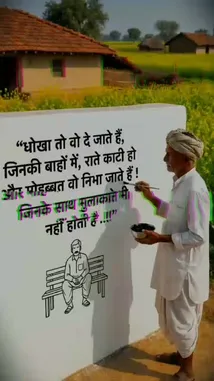 “धोखा तो वो दे जाते हैं,
जिनकी बाहों में, राते काटी हो
और मोहब्बत वो निभा जाते हैं !
जिनके साथ मुलाकात भी
नहीं होती हैं ...!!”